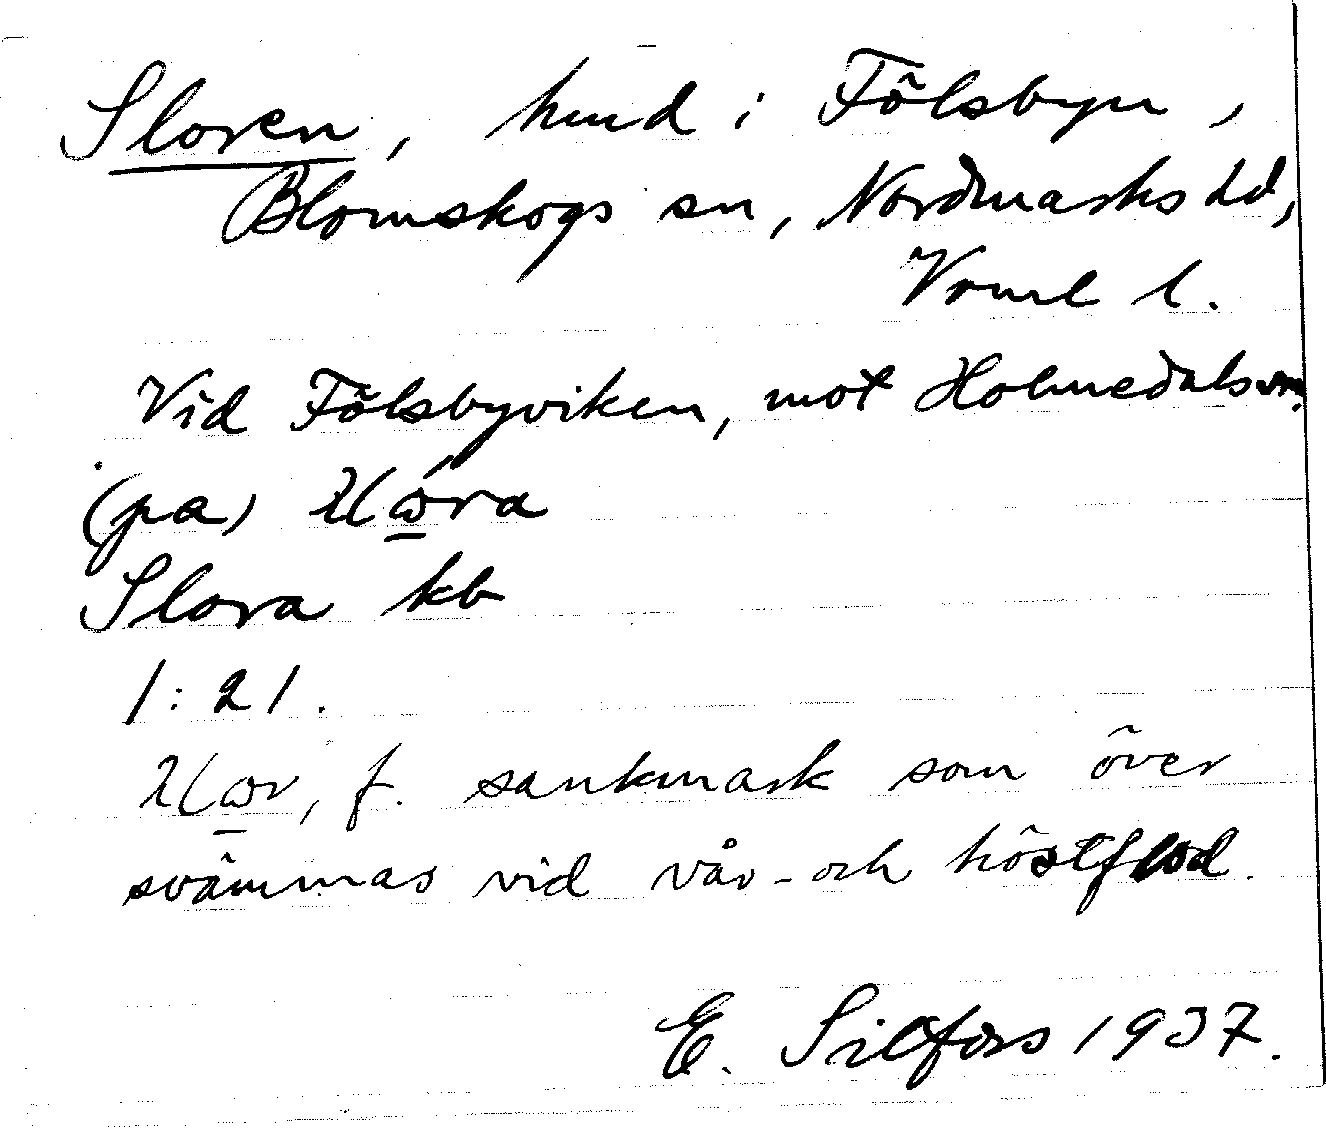 Sloren, hmd i Fölsbyn,
Blomskogs sn, Nordmarks hd,
Vrml l.
Vid Fölsbyviken, mot Holmedals sn.
(pa)
Slora kb
1:21.
f. sankmark som över
svämmas vid vår- och höstflod.
E. Silfors 1937.